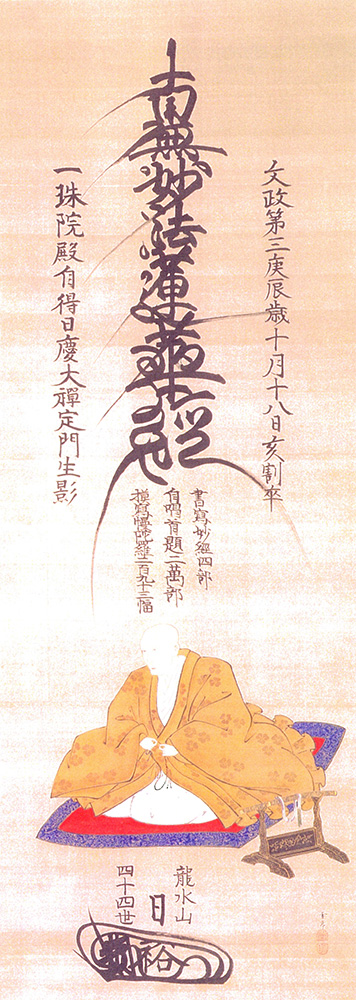 文政第三庚辰歳十月十八日亥割卒
南無妙法蓮華経
一珠院殿自得日慶大禪定門生影
書寫妙経四部
自唱首題二萬部
摸寫曼陀羅二百九十三幅
龍水山
四十四世
日裕